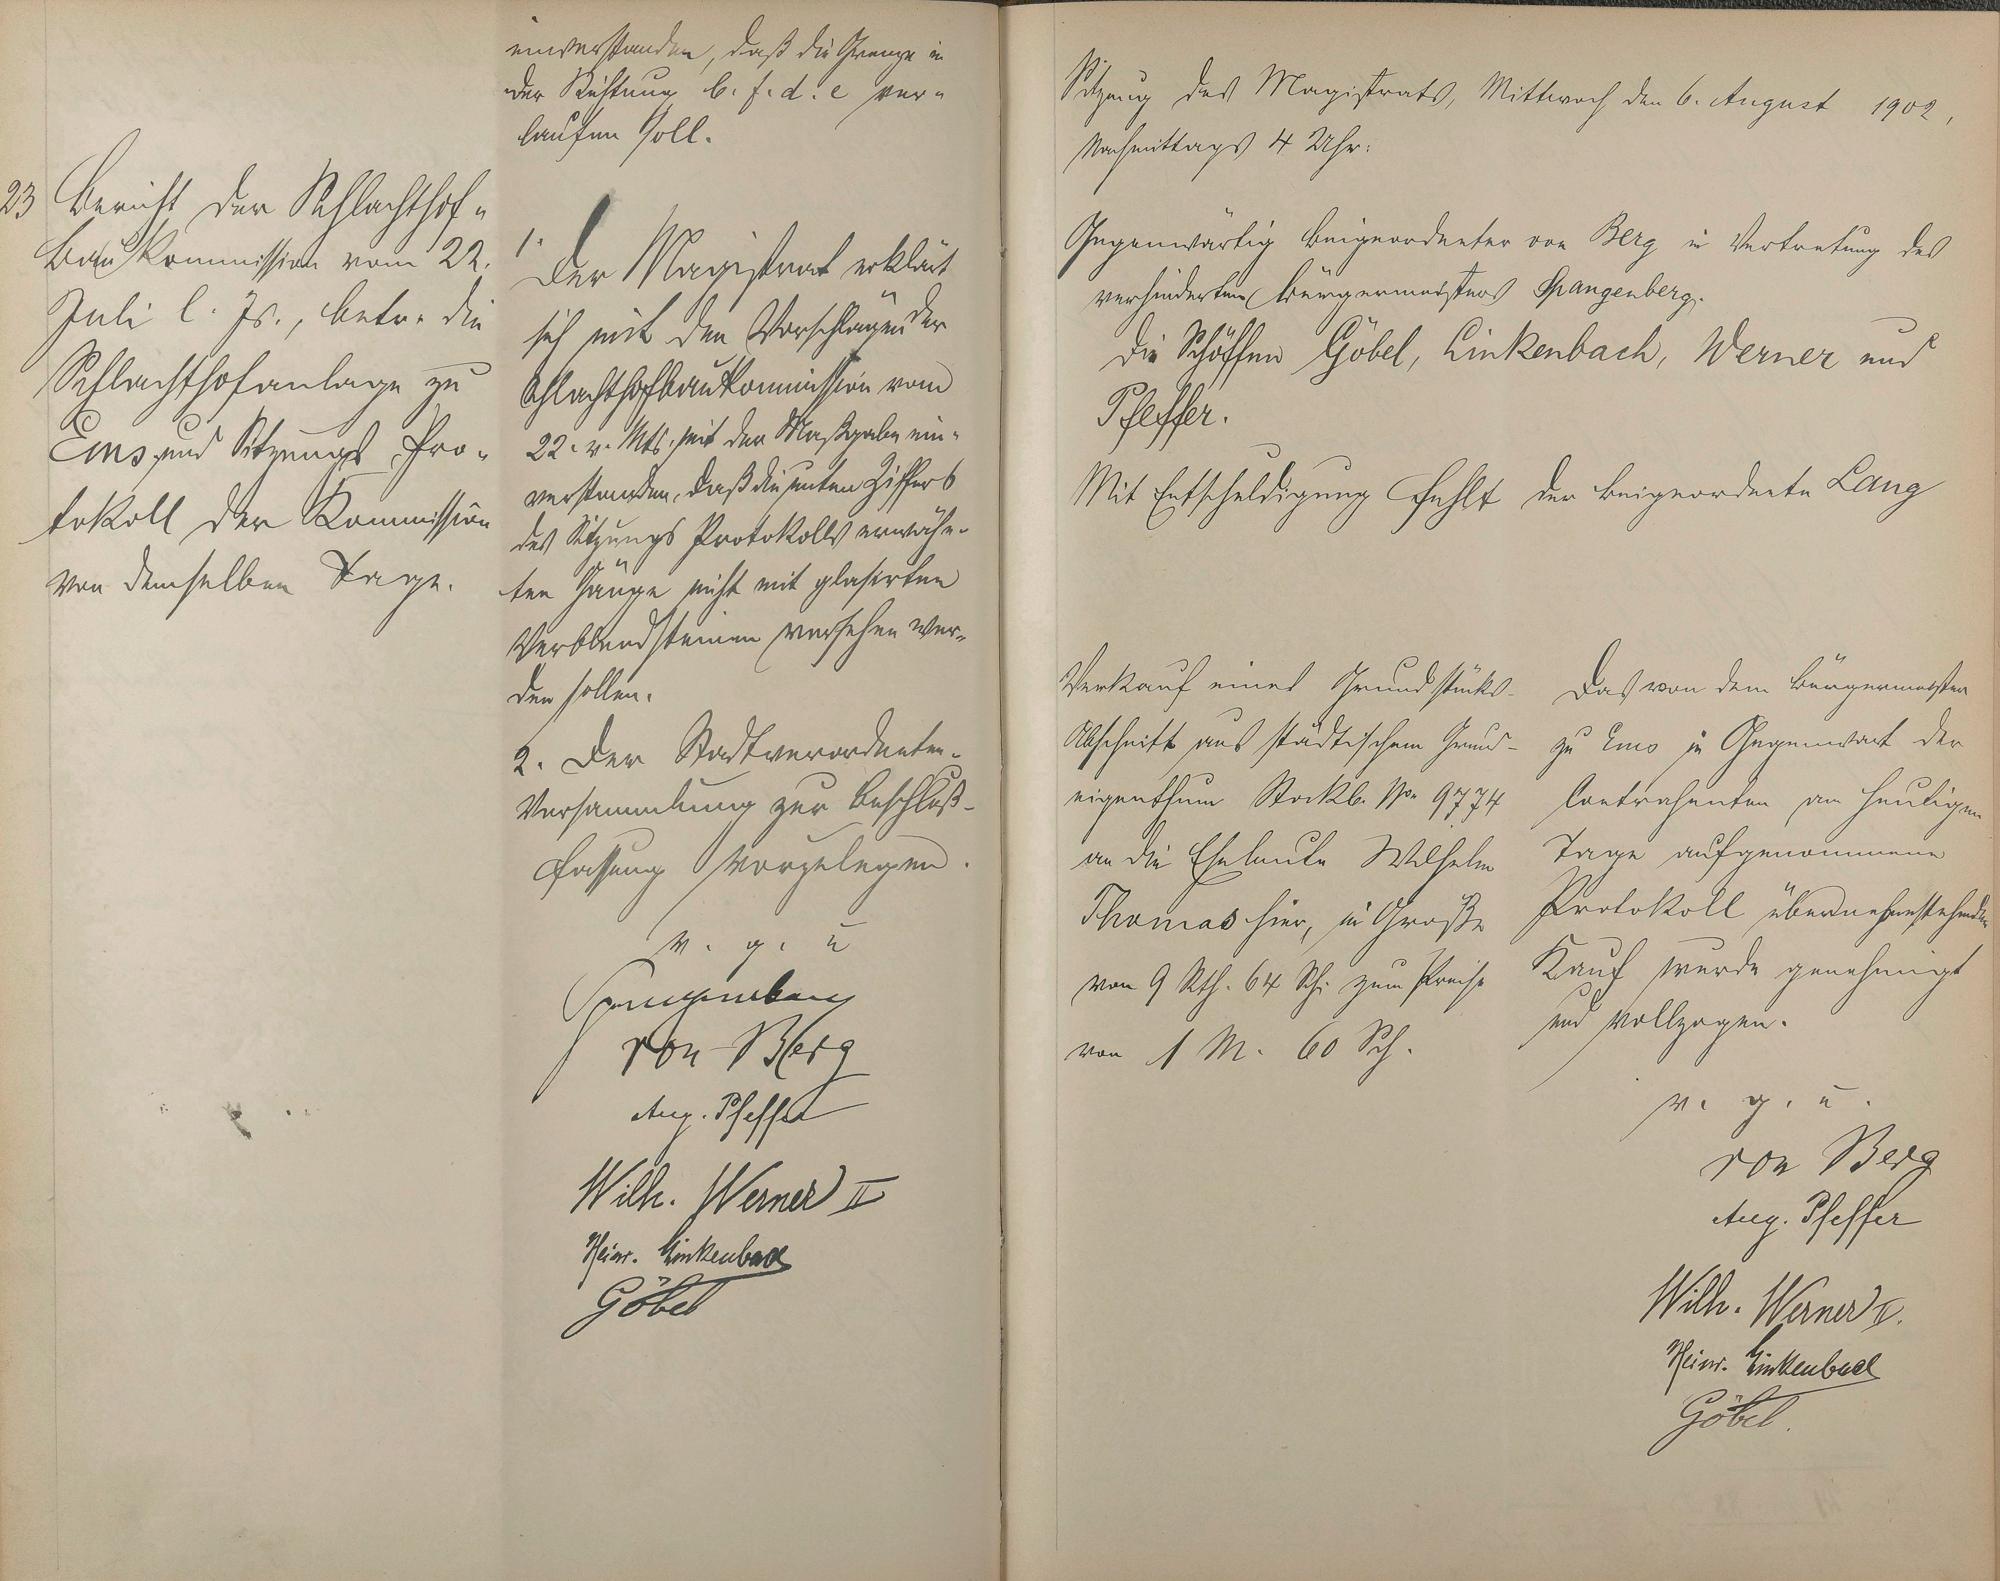 einverstanden, daß die Grenze in
der Richtung b. f. d. e ver-
laufen soll.
23 Bericht der Schlachthof-
Baukommission vom 22.
Juli l. Js., betr. die
Schlachthofanlage zu
Ems und Sitzungs Pro-
tokoll der Kommission
von demselben Tage.
1. Der Magistrat erklärt
sich mit den Vorschlägen der
Schlachthofbaukommission vom
22. v. Mts. mit der Maßgabe ein-
verstanden, daß die unter Ziffer 6
des Sitzungs Protokolls erwähn-
ten Gänge nicht mit glasirten
Verblendsteinen versehen wer-
den sollen.
2. Der Stadtverordneten-
Versammlung zur Beschluß-
fassung vorzulegen.
v. g. u
Spangenberg
von Berg
Aug. Pfeffer
Wilh. Werner II
Heinr. Linkenbach
Göbel
Sitzung des Magistrats, Mittwoch den 6. August 1902,
Nachmittags 4 Uhr.
Gegenwärtig Beigeordneter von Berg in Vertretung des
verhinderten Bürgermeisters Spangenberg.
Die Schöffen Göbel, Linkenbach, Werner und
Pfeffer.
Mit Entschuldigung fehlt der Beigeordnete Lang
Verkauf eines Grundstücks-
Abschnitts aus städtischem Grund-
eigenthum Stockb. No 9774
an die Eheleute Wilhelm
Thomas hier, in Große
von 9 Rth. 64 Sch. zum Preise
von 1 M. 60 Sch.
Das von dem Bürgermeister
zu Ems in Gegenwart der
Contrahenten am heutigen
Tage aufgenommene
Protokoll über nebenstehenden
Kauf wurde genehmigt
und vollzogen.
v. g. u.
von Berg
Aug. Pfeffer
Wilh. Werner II.
Heinr. Linkenbach
Göbel.